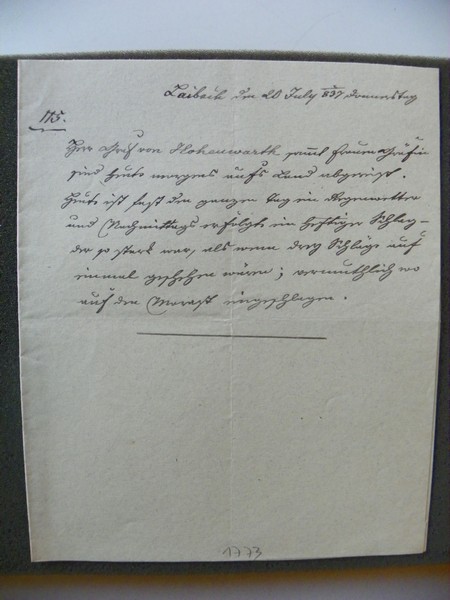 Laibach den 20 July 837 Donnerstag
175.
Herr Graf von Hohenwarth sammt Frauen Gräfin
sind heute morgens aufs Land abgereist.
Heute ist fast den ganzen Tag ein Regenwetter
und Nachmittags erfolgte ein heftiger Schlag –
der so stark war, als wenn drey Schläge auf
einmal geschehen wären; vermuthlich wo
auf den Morast eingeschlagen.
1773